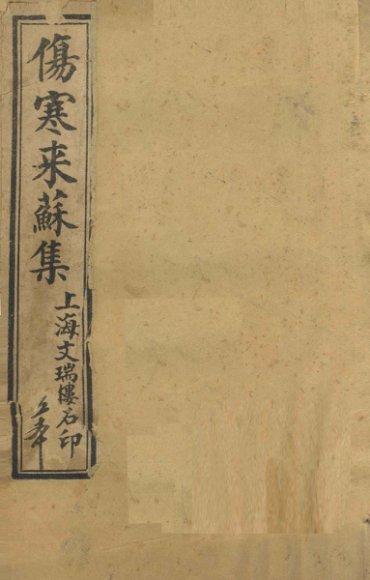 傷寒来蘇集
上海文瑞樓石印